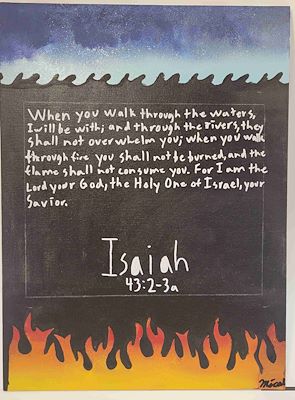 When you walk through the waters,
I will be with; and through the rivers, they
shall not overwhelm you; when you walk
through fire you shall not be burned, and the
flame shall not consume you. For I am the
Lord your God, the Holy One of Israel, your
Savior.
Isaiah
43:2-3a